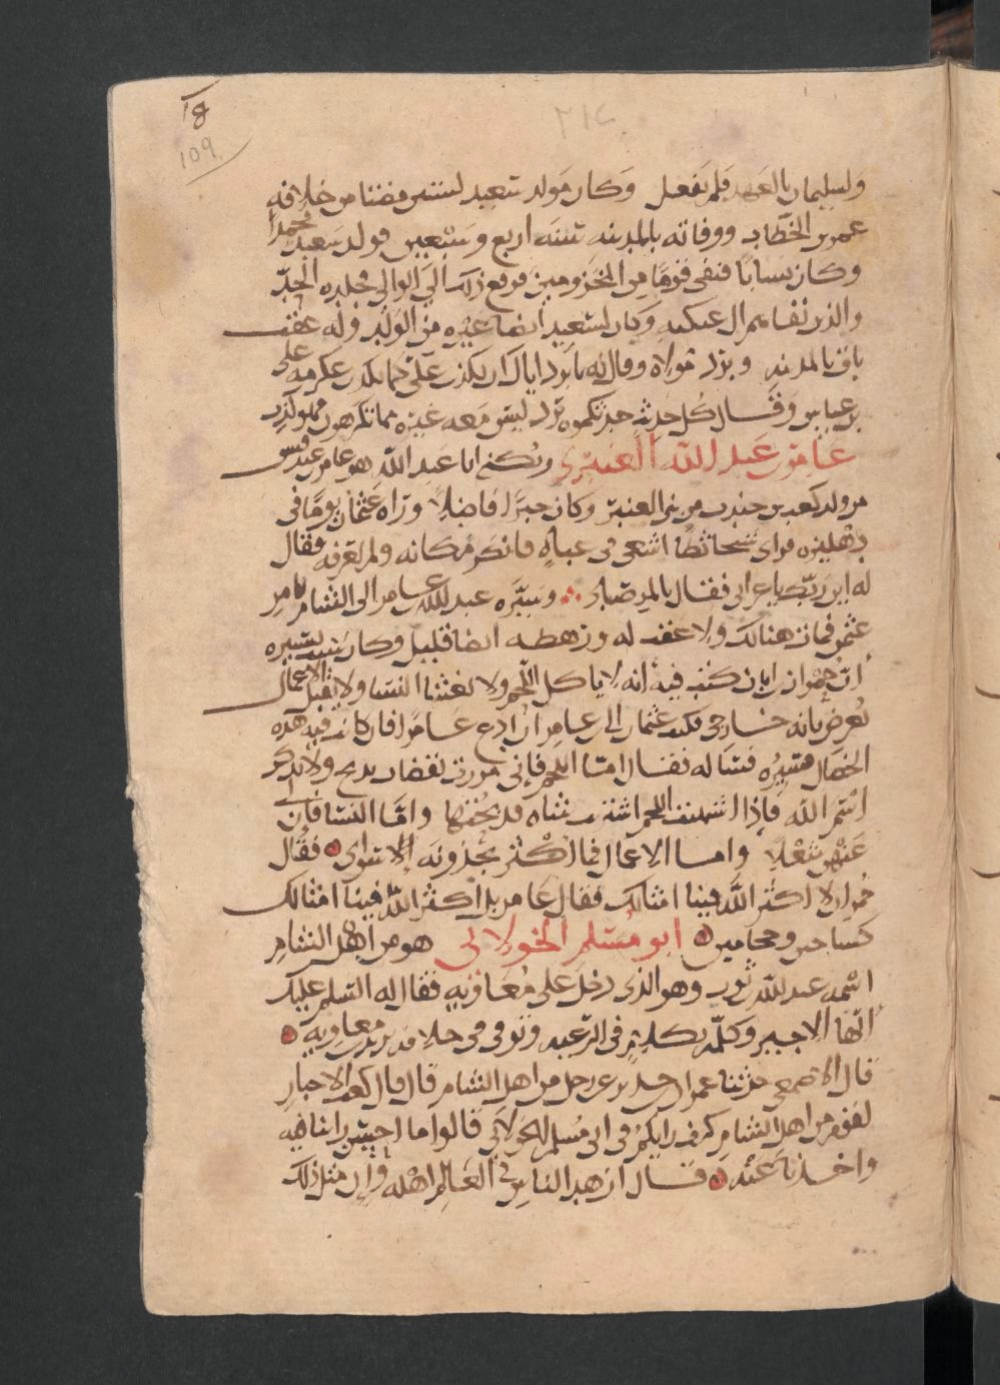 18
109
٢١٤
ولسليمان بالعهد فلم يفعل وكان مولد سعيد لسنتين مضتا من خلافه
عمر بن الخطاب ووفاته بالمدينه سنه اربع وتسعين فولد سعيد محمدا
وكان نسابا فنفى قوما من المخزوميين فرفع ذلك الى الوالي فجلده الحد
والذين نفاهم ال عنكثه وكان لسعيد ايضا غيره من الولد وله عقب
باق بالمدينه وبرد مولاه وقال له يا برد اياك ان تكذب علي كما يكذب عكرمه على
بن عباس وقال كل حديث حدثكموه برد ليس معه غيره مما تنكرون فهو كذب
عامر بن عبد الله العنبري ويكنى ابا عبد الله هو عامر بن عبد قيس
من ولد كعب بن جندب من بني العنبر وكان خيرا فاضلا وراه عثمان يوما في
دهليزه فراى شيخا ثطا اشغى في عباه فانكر مكانه ولم يعرفه فقال
له اين ربك يا اعرابي فقال بالمرصاد وسيره عبد الله بن عامر الى الشام بامر
عثمن فمات هنالك ولا عقب له ورهطه ايضا قليل وكان سبب تسييره
ان حمران ابان كتب فيه انه لا ياكل اللحم ولا يغشا النسا ولا يقبل الاعمال
يعرض بانه خارجي فكتب عثمان الى بن عامر ان ادع عامرا فان كانت فيه هذه
الخصال فسيره فساله فقال اما اللحم فاني مررت بقصاب يذبح ولا يذكر
اسم الله فاذا اشتهيت اللحم اشتريت شاه فذبحتها واما النسا فان لي
عنهن شغلا واما الاعمال فما اكثر من تجدونه لا سواي فقال
حمران لا اكثر الله فينا امثالك فقال عامر بل اكثر الله فينا امثالك
كساحين وحجامين ابو مسلم الخولاني هو من اهل الشام
اسمه عبد الله ثوب وهو الذي دخل على معاويه فقال له السلم عليك
ايها الاجير وكلمه بكلام في الرعيه وتوفي في خلافه يزيد بن معاويه
قال الاصمعي حدثنا عمران بن حدير عن رجل من اهل الشام قال قال كعب الاحبار
لقوم من اهل الشام كيف رايكم في ابي مسلم الخولاني قالوا ما احسن راينا فيه
واخذنا عنه قال ازهد الناس في العالم اهله وان مثل ذلك